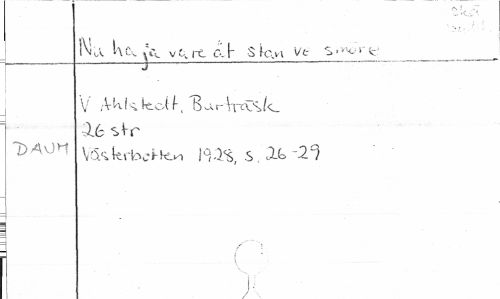 Nu ha ja vare åt stan ve smöre
V Ahlstedt, Burträsk
26 str
DAUM Västerbotten 1928, s. 26-29